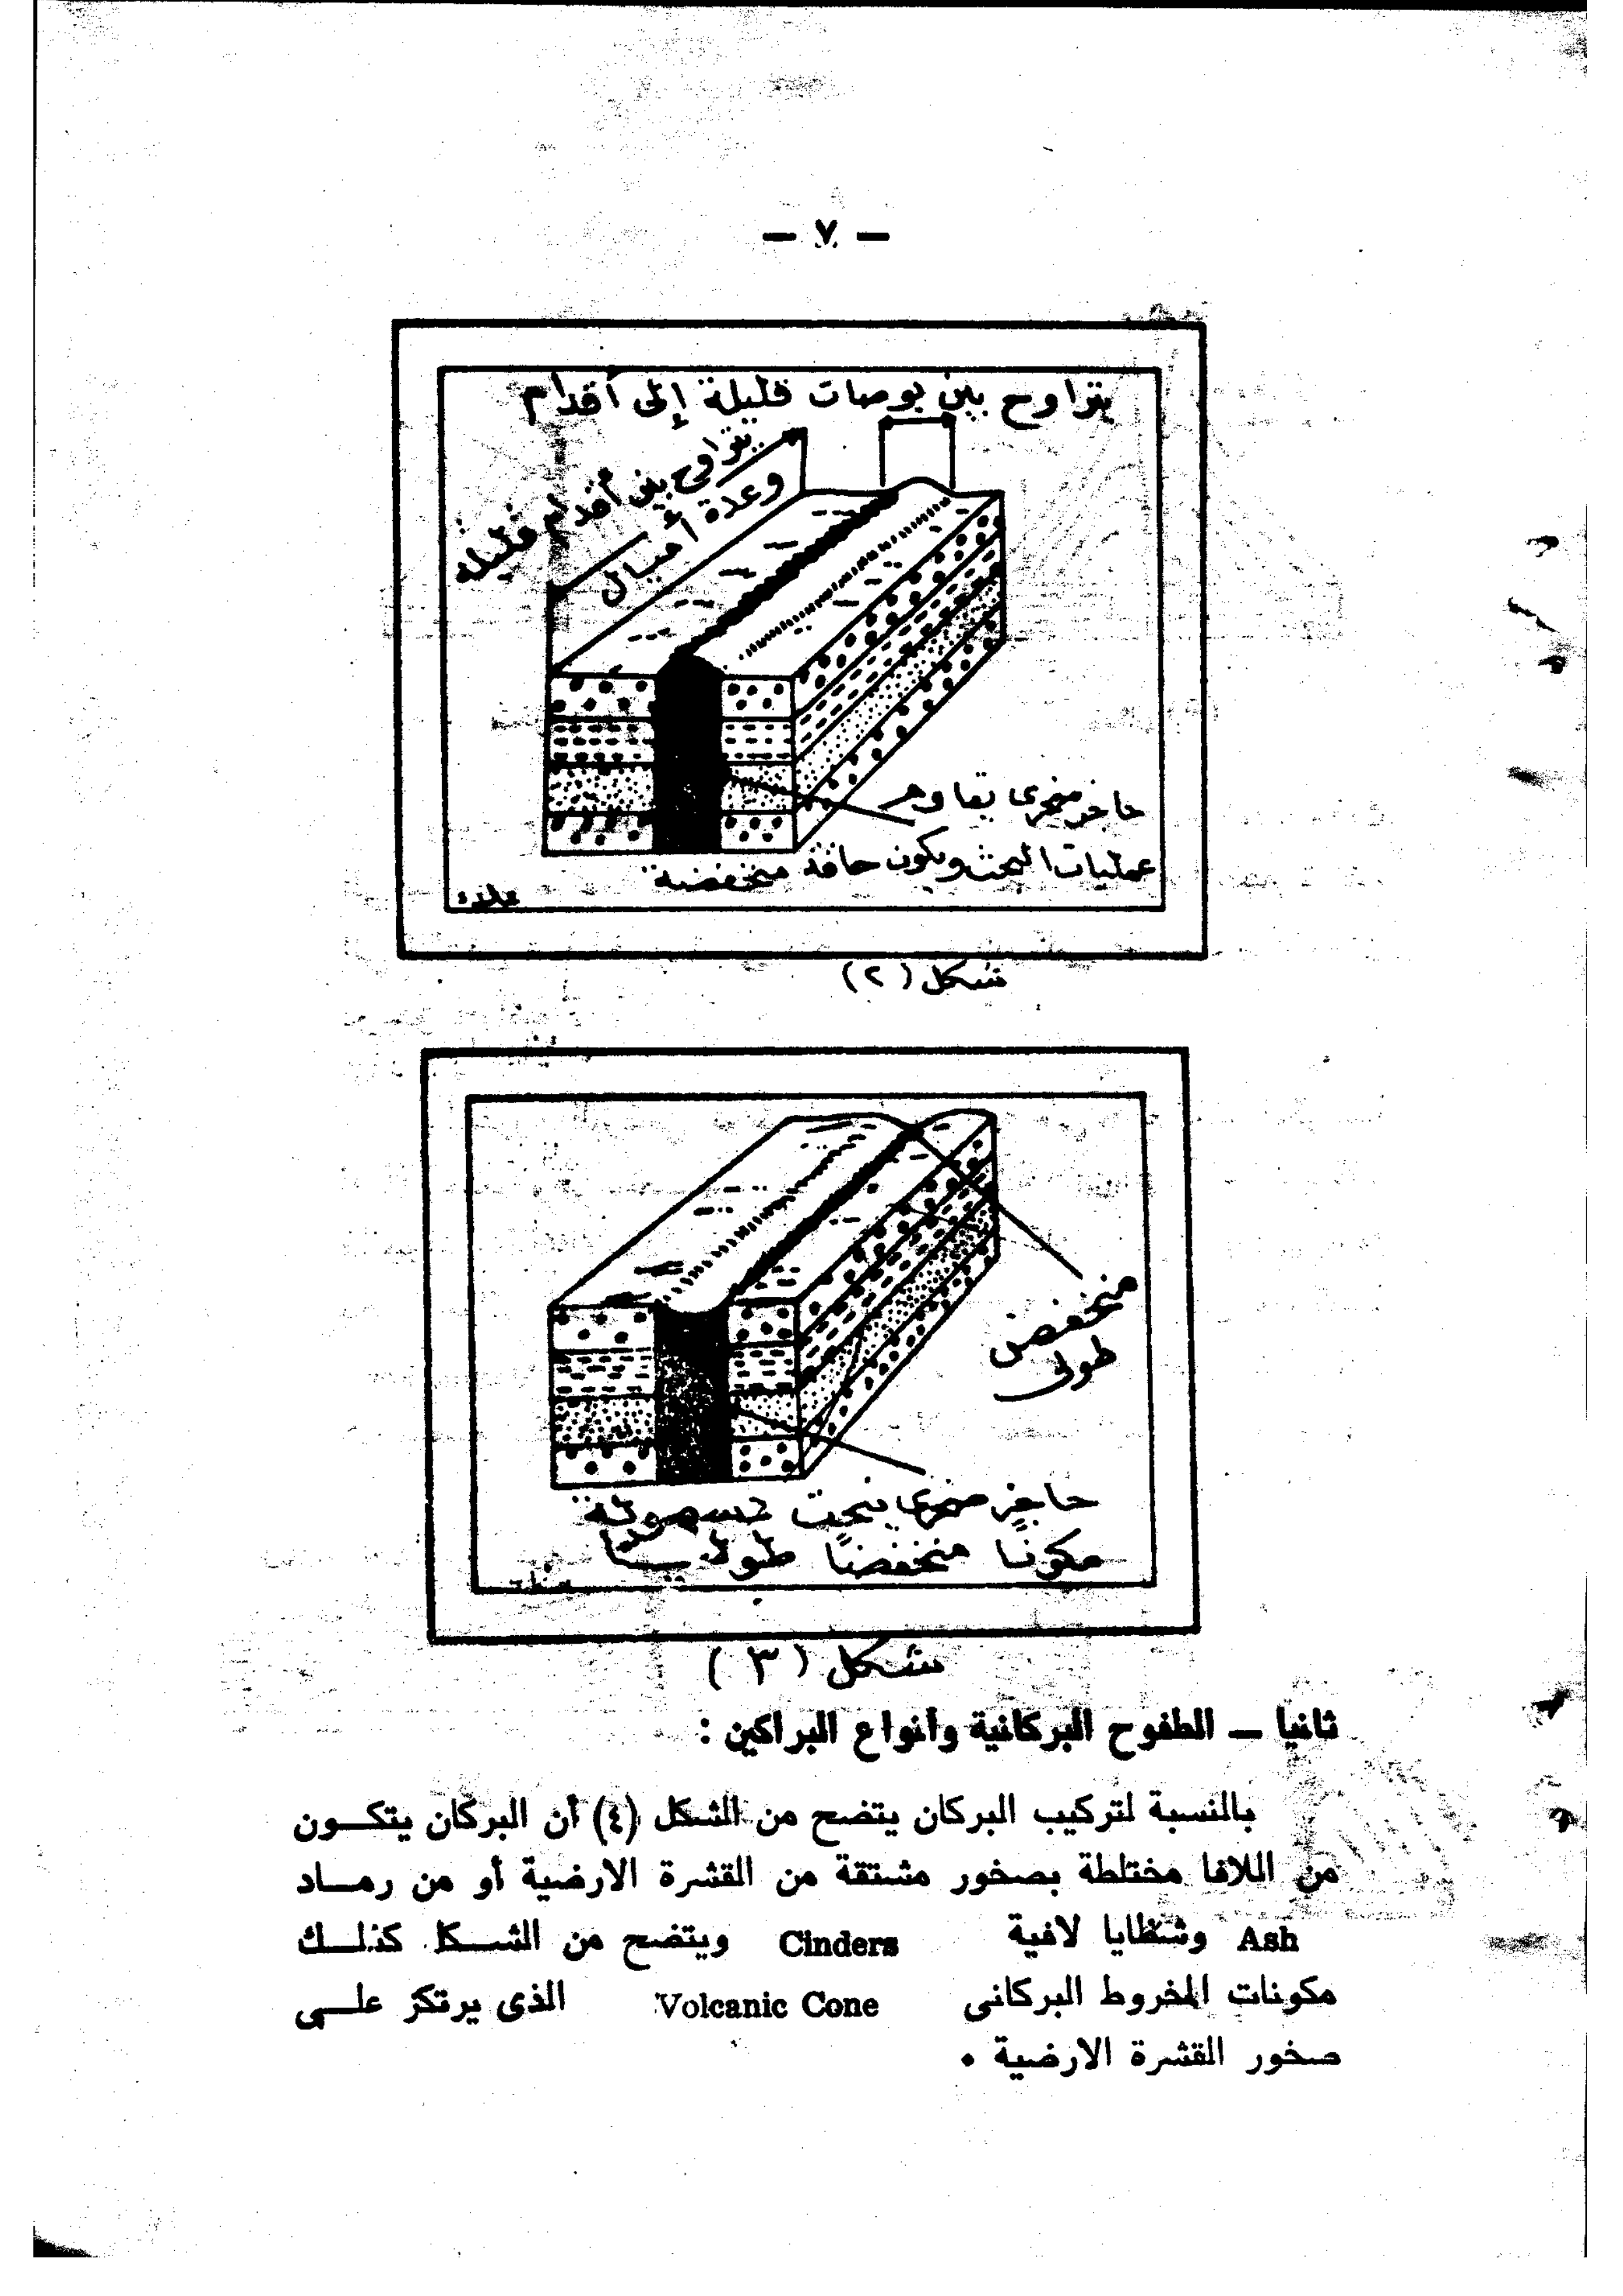 — ٧ —
يتراوح بين بوصات قليلة إلى أقدام
يتراوح بين أقدام قليلة
وعدة أميال
حاجز صخرى يقاوم
عمليات النحت ويكون حافة منخفضة
شكل (٢)
منخفض
طولى
حاجز صخرى ينحت بسهولة
مكونًا منخفضًا طوليــًا
شكل (٣)
ثانيا — الطفوح البركانية وأنواع البراكين :
بالنسبة لتركيب البركان يتضح من الشكل (٤) أن البركان يتكــون
من اللافا مختلطة بصخور مشتقة من القشرة الارضية أو من رمــاد
Ash وشظايا لافية Cinders ويتضح من الشــكل كذلــك
مكونات المخروط البركانى Volcanic Cone الذى يرتكز علــى
صخور القشرة الارضية .